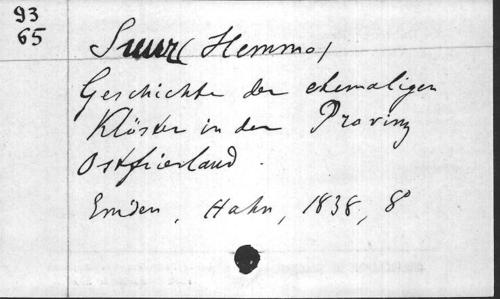 93
65
Suur (Hemmo)
Geschichte der ehemaligen
Klöster in der Provinz
Ostfriesland.
Emden, Hahn, 1838, 8°